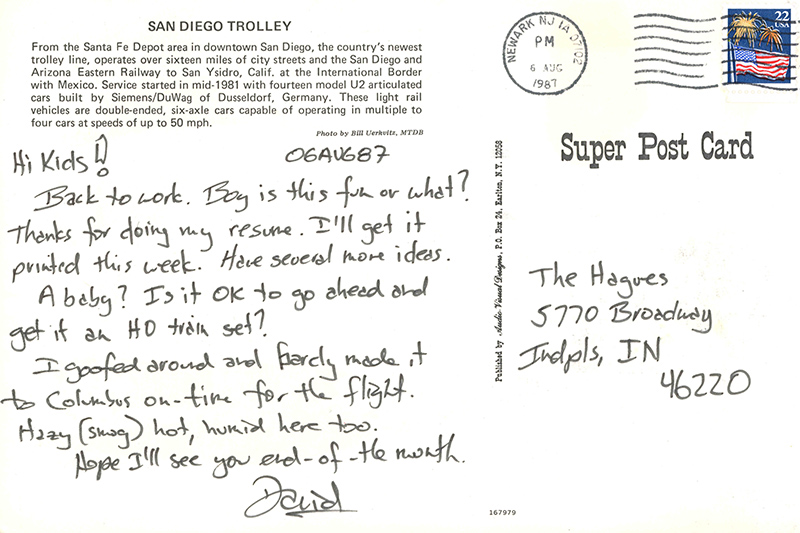 SAN DIEGO TROLLEY
From the Santa Fe Depot area in downtown San Diego, the country's newest
trolley line, operates over sixteen miles of city streets and the San Diego and
Arizona Eastern Railway to San Ysidro, Calif. at the International Border
with Mexico. Service started in mid-1981 with fourteen model U2 articulated
cars built by Siemens/DuWag of Dusseldorf, Germany. These light rail
vehicles are double-ended, six-axle cars capable of operating in multiple to
four cars at speeds of up to 50 mph.
Photo by Bill Uerkvitz, MTDB
Hi Kids! 06AUG87
Back to work. Boy is this fun or what?
Thanks for doing my resume. I'll get it
printed this week. Have several more ideas.
A baby? Is it OK to go ahead and
get it an HO train set?
I goofed around and barely made it
to Columbus on-time for the flight.
Hazy (smog) hot, humid here too.
Hope I'll see you end-of-the month.
David
NEWARK NJ 07102
PM
6 AUG
1987
22
USA
Super Post Card
Published by Audio-Visual Designs, P.O. Box 24, Earlton, N.Y. 12058
The Hagues
5770 Broadway
Indpls, IN
46220
167979